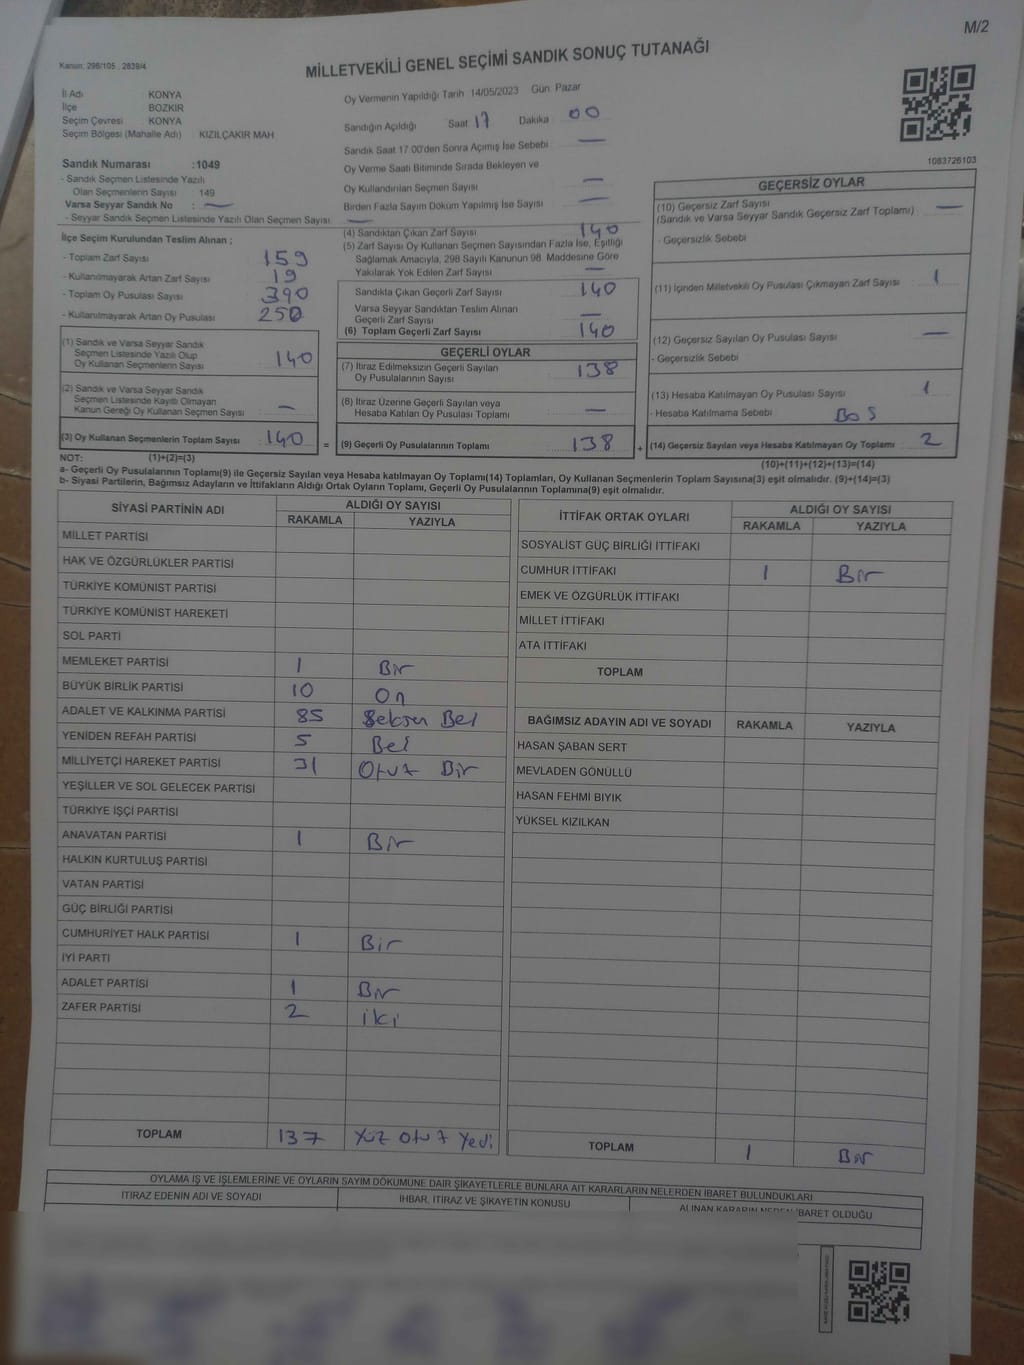 M/2
Kanun: 298/105 , 2839/4
MİLLETVEKİLİ GENEL SEÇİMİ SANDIK SONUÇ TUTANAĞI
İl Adı KONYA
İlçe BOZKIR
Seçim Çevresi KONYA
Seçim Bölgesi (Mahalle Adı) KIZILÇAKIR MAH
Sandık Numarası :1049
- Sandık Seçmen Listesinde Yazılı
Olan Seçmenlerin Sayısı 149
Varsa Seyyar Sandık No : —
- Seyyar Sandık Seçmen Listesinde Yazılı Olan Seçmen Sayısı —
Oy Vermenin Yapıldığı Tarih 14/05/2023 Gün Pazar
Sandığın Açıldığı Saat 17 Dakika 00
Sandık Saat 17 00'den Sonra Açılmış İse Sebebi —
Oy Verme Saati Bitiminde Sırada Bekleyen ve
Oy Kullandırılan Seçmen Sayısı —
Birden Fazla Sayım Döküm Yapılmış İse Sayısı —
1083726103
İlçe Seçim Kurulundan Teslim Alınan ;
- Toplam Zarf Sayısı 159
- Kullanılmayarak Artan Zarf Sayısı 19
- Toplam Oy Pusulası Sayısı 390
- Kullanılmayarak Artan Oy Pusulası 250
(1) Sandık ve Varsa Seyyar Sandık
Seçmen Listesinde Yazılı Olup
Oy Kullanan Seçmenlerin Sayısı 140
(2) Sandık ve Varsa Seyyar Sandık
Seçmen Listesinde Kayıtlı Olmayan
Kanun Gereği Oy Kullanan Seçmen Sayısı —
(3) Oy Kullanan Seçmenlerin Toplam Sayısı 140 =
(4) Sandıktan Çıkan Zarf Sayısı 140
(5) Zarf Sayısı Oy Kullanan Seçmen Sayısından Fazla İse, Eşitliği
Sağlamak Amacıyla, 298 Sayılı Kanunun 98. Maddesine Göre
Yakılarak Yok Edilen Zarf Sayısı —
Sandıkta Çıkan Geçerli Zarf Sayısı 140
Varsa Seyyar Sandıktan Teslim Alınan
Geçerli Zarf Sayısı —
(6) Toplam Geçerli Zarf Sayısı 140
GEÇERLİ OYLAR
(7) İtiraz Edilmeksizin Geçerli Sayılan
Oy Pusulalarının Sayısı 138
(8) İtiraz Üzerine Geçerli Sayılan veya
Hesaba Katılan Oy Pusulası Toplamı —
(9) Geçerli Oy Pusulalarının Toplamı 138 +
GEÇERSİZ OYLAR
(10) Geçersiz Zarf Sayısı —
(Sandık ve Varsa Seyyar Sandık Geçersiz Zarf Toplamı)
- Geçersizlik Sebebi
(11) İçinden Milletvekili Oy Pusulası Çıkmayan Zarf Sayısı 1
(12) Geçersiz Sayılan Oy Pusulası Sayısı —
- Geçersizlik Sebebi
(13) Hesaba Katılmayan Oy Pusulası Sayısı 1
- Hesaba Katılmama Sebebi BOŞ
(14) Geçersiz Sayılan veya Hesaba Katılmayan Oy Toplamı 2
NOT: (1)+(2)=(3)
(10)+(11)+(12)+(13)=(14)
a- Geçerli Oy Pusulalarının Toplamı(9) ile Geçersiz Sayılan veya Hesaba katılmayan Oy Toplamı(14) Toplamları, Oy Kullanan Seçmenlerin Toplam Sayısına(3) eşit olmalıdır. (9)+(14)=(3)
b- Siyasi Partilerin, Bağımsız Adayların ve İttifakların Aldığı Ortak Oyların Toplamı, Geçerli Oy Pusulalarının Toplamına(9) eşit olmalıdır.
SİYASİ PARTİNİN ADI ALDIĞI OY SAYISI
RAKAMLA YAZIYLA
MİLLET PARTİSİ
HAK VE ÖZGÜRLÜKLER PARTİSİ
TÜRKİYE KOMÜNİST PARTİSİ
TÜRKİYE KOMÜNİST HAREKETİ
SOL PARTİ
MEMLEKET PARTİSİ 1 Bir
BÜYÜK BİRLİK PARTİSİ 10 On
ADALET VE KALKINMA PARTİSİ 85 Seksen Beş
YENİDEN REFAH PARTİSİ 5 Beş
MİLLİYETÇİ HAREKET PARTİSİ 31 Otuz Bir
YEŞİLLER VE SOL GELECEK PARTİSİ
TÜRKİYE İŞÇİ PARTİSİ
ANAVATAN PARTİSİ 1 Bir
HALKIN KURTULUŞ PARTİSİ
VATAN PARTİSİ
GÜÇ BİRLİĞİ PARTİSİ
CUMHURİYET HALK PARTİSİ 1 Bir
İYİ PARTİ
ADALET PARTİSİ 1 Bir
ZAFER PARTİSİ 2 iki
TOPLAM 137 Yüz Otuz Yedi
İTTİFAK ORTAK OYLARI ALDIĞI OY SAYISI
RAKAMLA YAZIYLA
SOSYALİST GÜÇ BİRLİĞİ İTTİFAKI
CUMHUR İTTİFAKI 1 Bir
EMEK VE ÖZGÜRLÜK İTTİFAKI
MİLLET İTTİFAKI
ATA İTTİFAKI
TOPLAM
BAĞIMSIZ ADAYIN ADI VE SOYADI RAKAMLA YAZIYLA
HASAN ŞABAN SERT
MEVLADEN GÖNÜLLÜ
HASAN FEHMİ BIYIK
YÜKSEL KIZILKAN
TOPLAM 1 Bir
OYLAMA İŞ VE İŞLEMLERİNE VE OYLARIN SAYIM DÖKÜMÜNE DAİR ŞİKAYETLERLE BUNLARA AİT KARARLARIN NELERDEN İBARET BULUNDUKLARI
İTİRAZ EDENİN ADI VE SOYADI İHBAR, İTİRAZ VE ŞİKAYETİN KONUSU ALINAN KARARIN NEDEN İBARET OLDUĞU